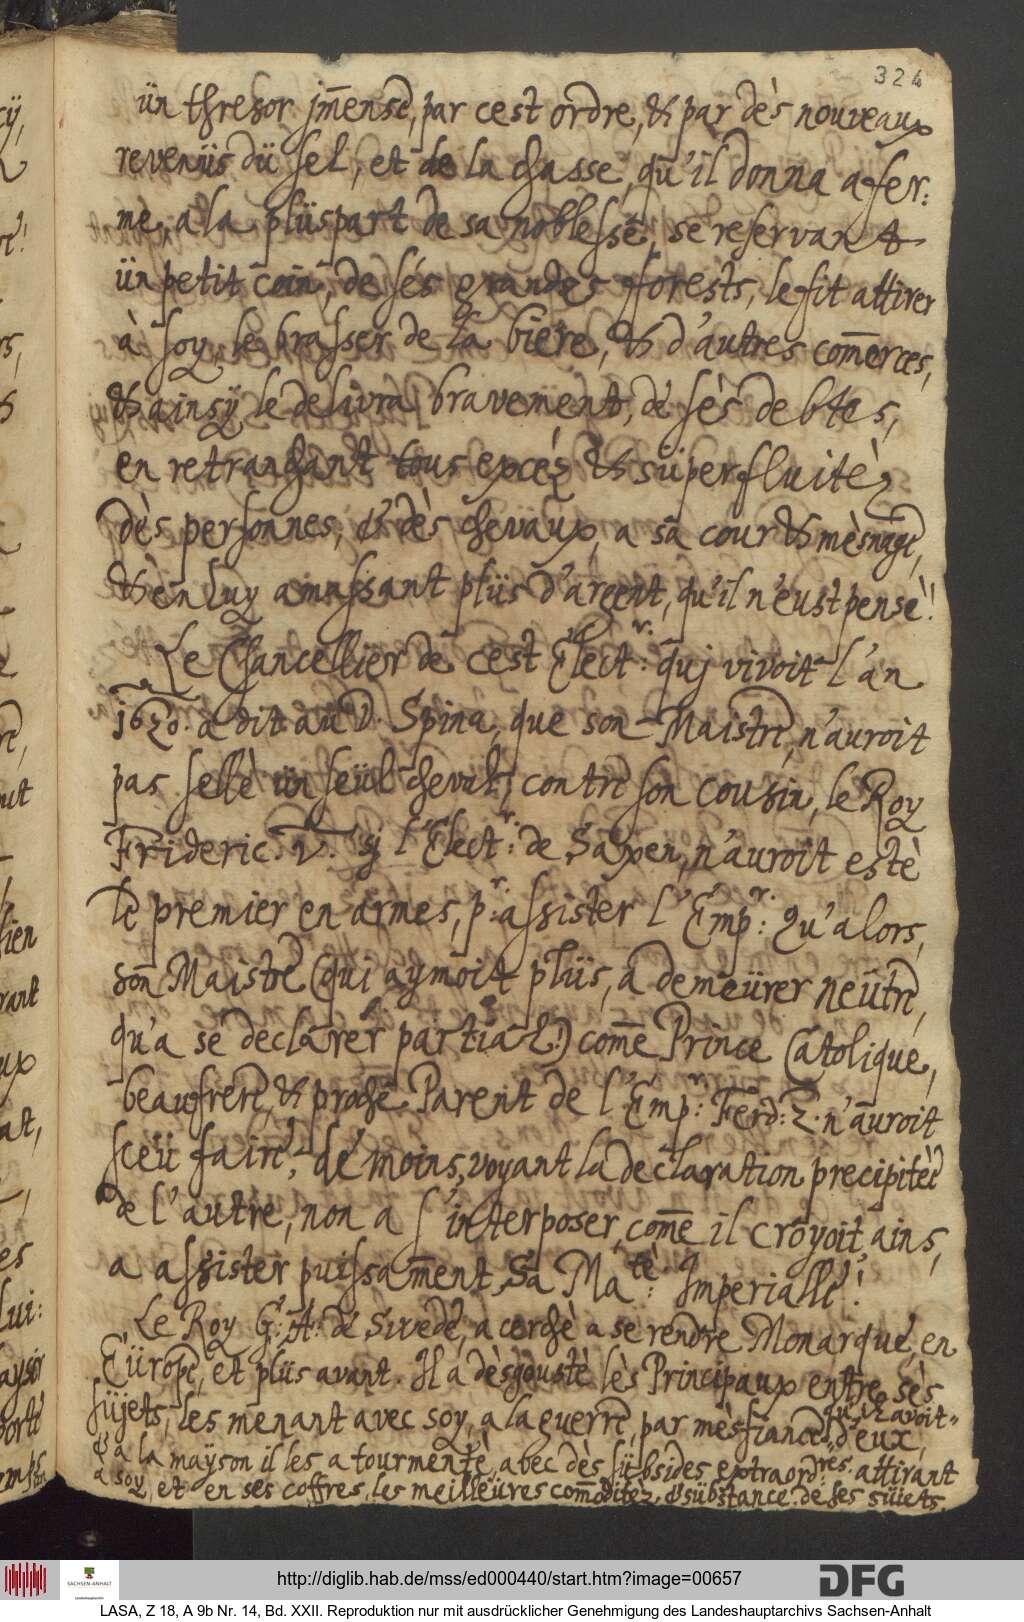 324
ün thresor jm̄ense, par cest ordre, & par dès nouveaux
revenüs dü sel, et de la chasse, qu'il donna a fer:
me, a la plüspart de sa noblesse, se reservant
ün petit coin, de sés grandes forests, le fit attirer
à soy le brasser de la biere, & d'autres com̄erces,
& ainsÿ le delivra bravement, de sès debtes,
en retranchant tous excéz & süperfluitèz
dès personnes, & dès chevaux, a sa cour & mèsnage,
& en luy amassant plüs d'argent, qu'il n'eust pensè!
Le Chancellier de cest Elect:r quj vivoit l'an
1620. a dit au D. Spina, que son Maistre, n'auroit
pas sellè ün seül cheval, contre son cousin, le Roy
Frideric. V. sj l'Elect:r de Saxen, n'auroit estè
le premier en armes, p:r assister l'Emp:r Qu'alors,
son Maistre (qui aymoit plüs, a demeürer neütre,
qu'a se declarer partial) com̄e Prince Catolique,
beaufrere, & proche Parent de l'Emp:r Ferd: 2. n'auroit
sceü faire, de moins, voyant la declaration precipitèe
de l'autre, non a s'interposer, com̄e il croyoit, ains,
a assister puissam̄ent, Sa Ma:tè Imperialle!
Le Roy G: A: de Swede, a cerchè a se rendre Monarque, en
Eürope, et plüs avant. Il a dèsgoustè lès Principaux entre sès
süjets, les menant avec soy, a la guerre, par mèsfiance qu'il avoit d'eux,
& a la mayson il les a tourmentè, avec dès sübsides extraord:res attirant
a soy, et en ses coffres, les meilleüres com̄oditez, & sübstance de ses süjets.
http://diglib.hab.de/mss/ed000440/start.htm?image=00657
SACHSEN-ANHALT
Landeshauptarchiv
DFG
LASA, Z 18, A 9b Nr. 14, Bd. XXII. Reproduktion nur mit ausdrücklicher Genehmigung des Landeshauptarchivs Sachsen-Anhalt